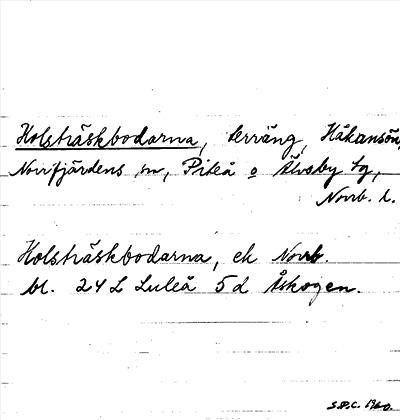 Holsträskbodarna, terräng, Håkansön,
Norrfjärdens sn, Piteå o Älvsby tg,
Norrb. l.
Holsträskbodarna, ek Norrb.
bl. 24 L Luleå 5 d Åskogen.
S.P.C. 1960.